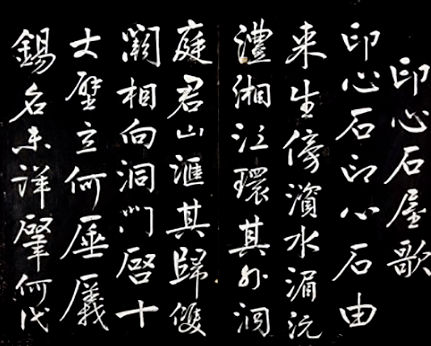 印心石屋歌
印心石印心石由
来生傍澬水湄沅
澧湘江環其外洞
庭君山滙其歸雙
闕相向洞門啓十
丈壁立何厜㕒
錫名未詳肇何代